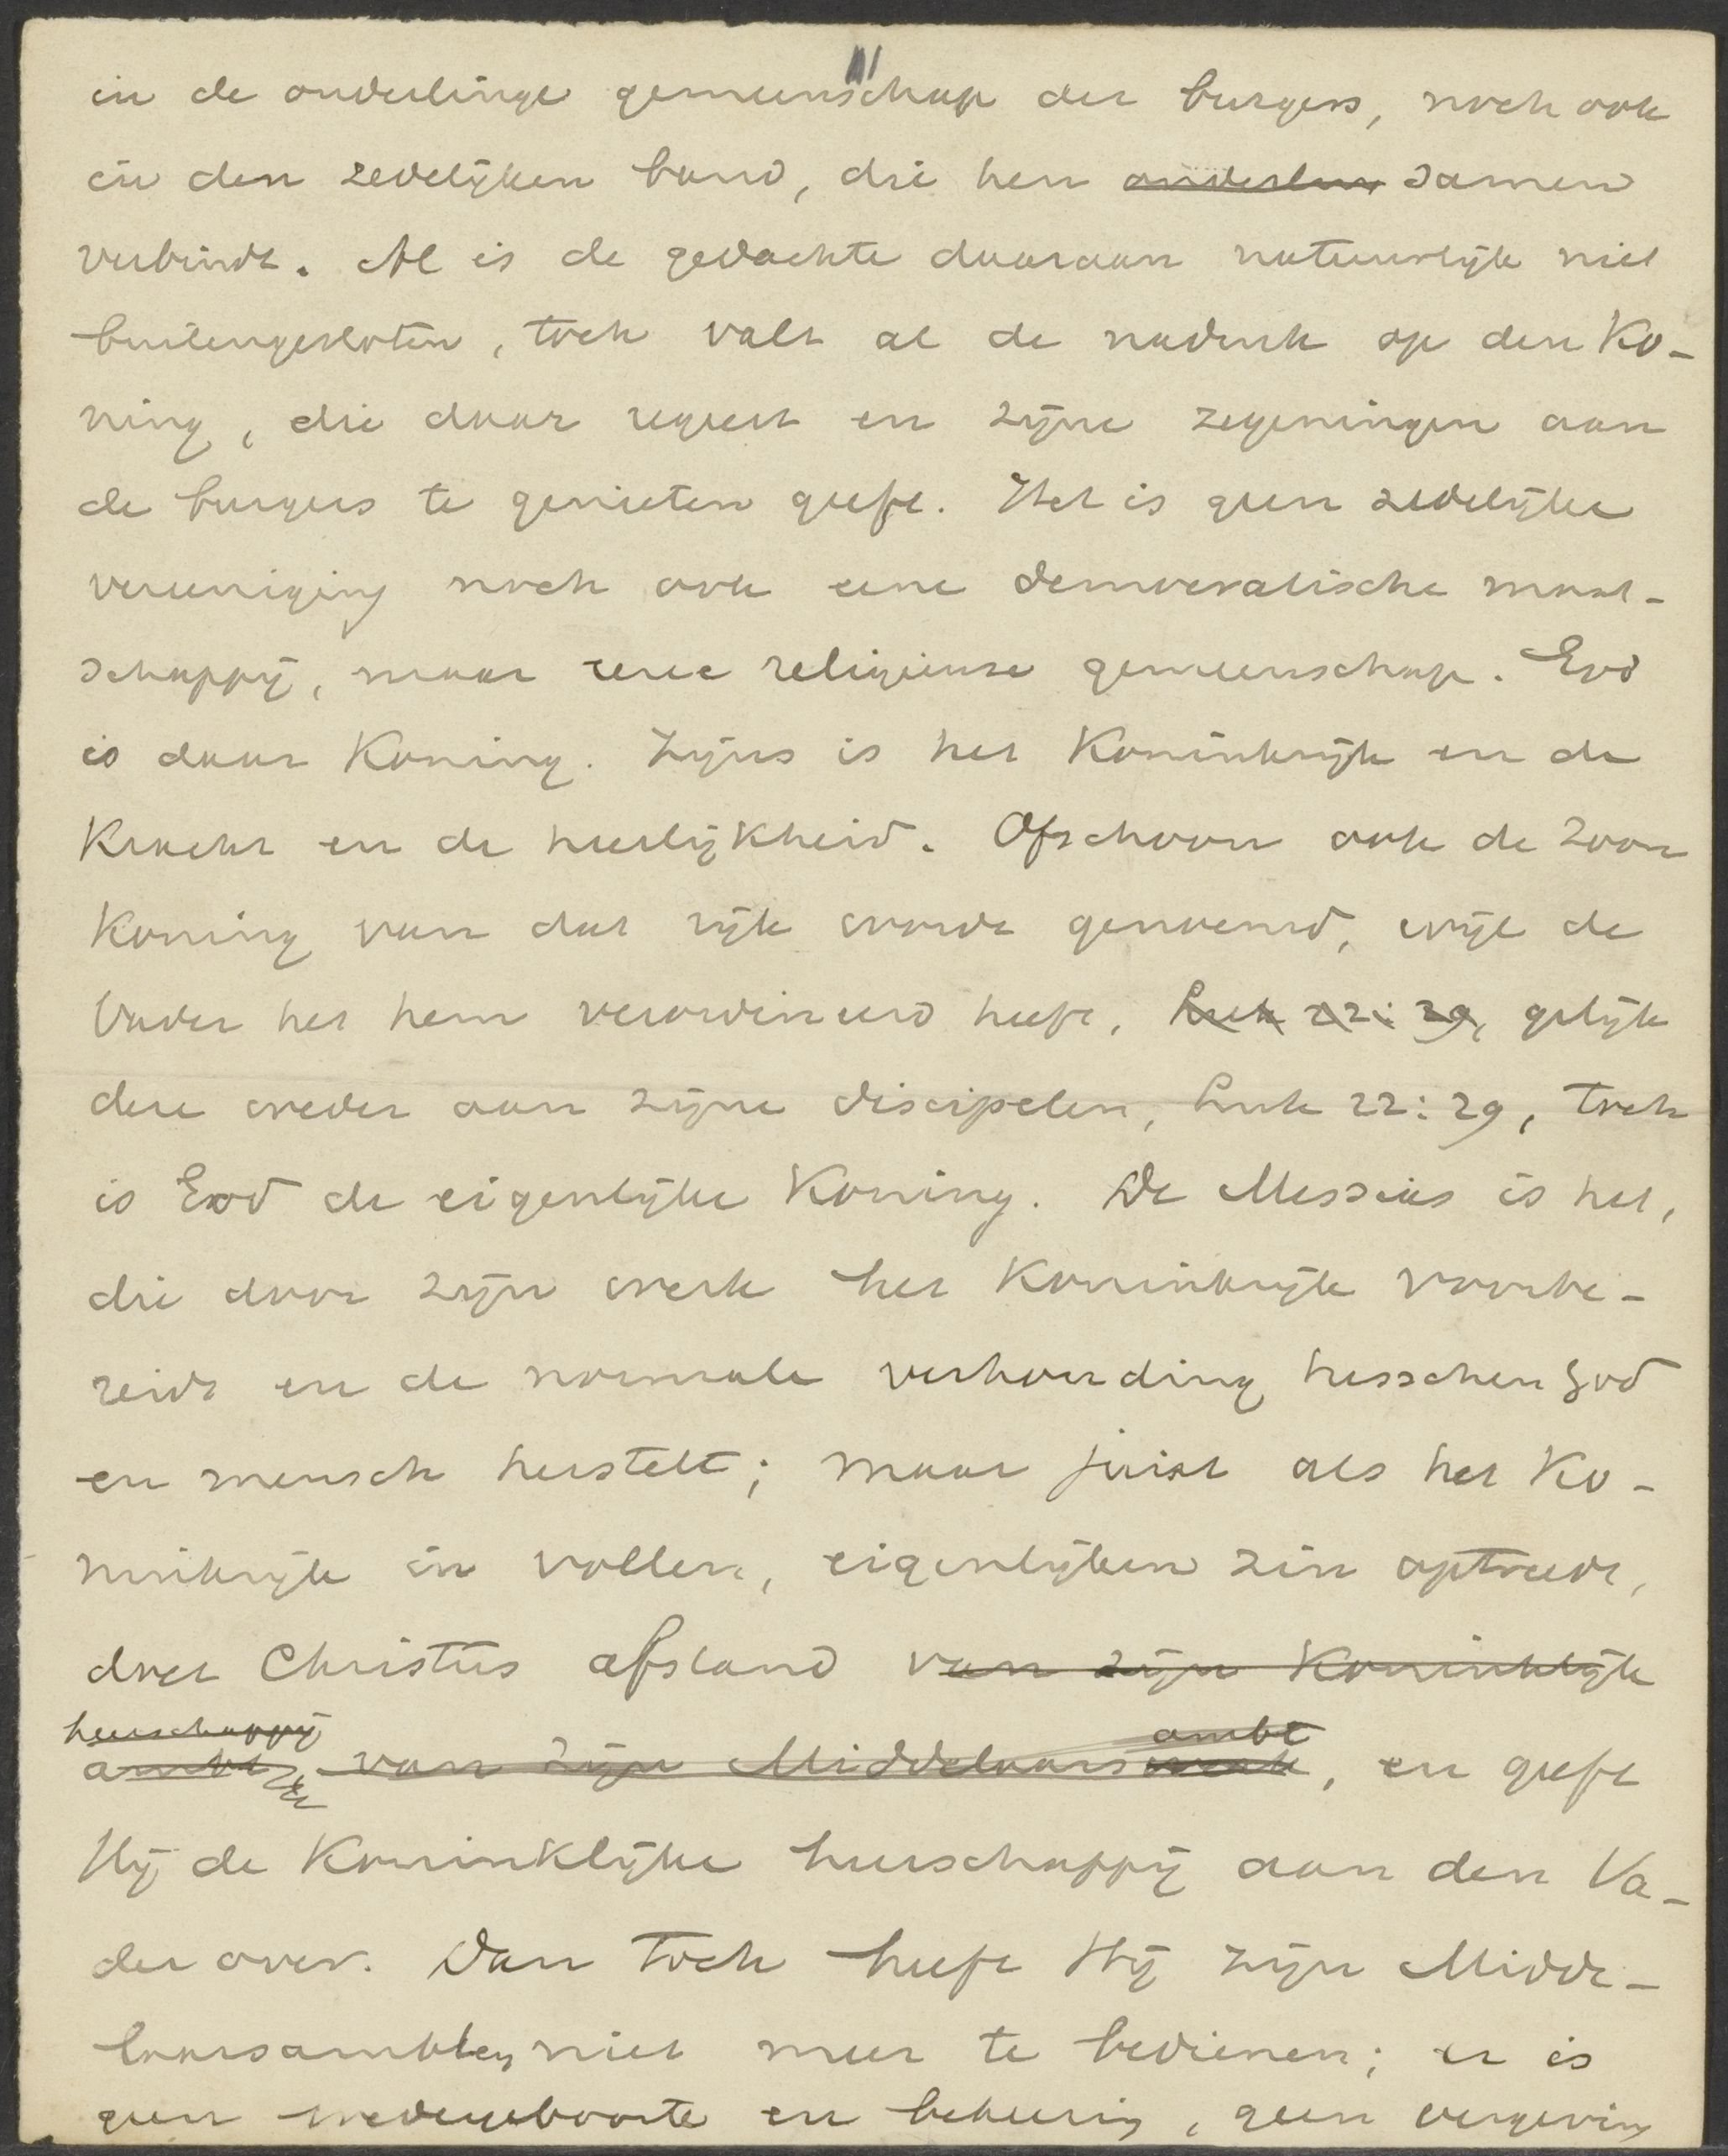 in de onderlinge gemeenschap der burgers, noch ook
in den zedelijken band, die hen onderlin samen
verbindt. Al is de gedachte daaraan natuurlijk niet
buitengesloten, toch valt al de nadruk op den Ko-
ning, die daar regeert en zijne zegeningen aan
de burgers te genieten geeft. Het is geen zedelijke
vereeniging noch ook eene democratische maat-
schappij, maar eene religieuse gemeenschap. God
is daar Koning. Zijns is het Koninkrijk en de
Kracht en de heerlijkheid. Ofschoon ook de Zoon
Koning van dat rijk wordt genoemd, wijl de
Vader het hem verordineerd heeft, Luk 22:29, gelijk
deze weder aan zijne discipelen, Luk 22:29, toch
is God de eigenlijke Koning. De Messias is het,
die door zijn werk het Koninkrijk voorbe-
reidt en de normale verhouding tusschen God
en mensch herstelt; maar juist als het Ko-
ninkrijk in vollen, eigenlijken zin optreedt,
doet Christus afstand van zijn Koninklijk
heerschappij ambt
ambt van zijn Middelaarswerk, en geeft
Hij de Koninklijke heerschappij aan den Va-
der over. Dan toch heeft Hij zijn Midde-
laarsambt niet meer te bedienen; er is
geen wedergeboorte en bekeering, geen vergeving